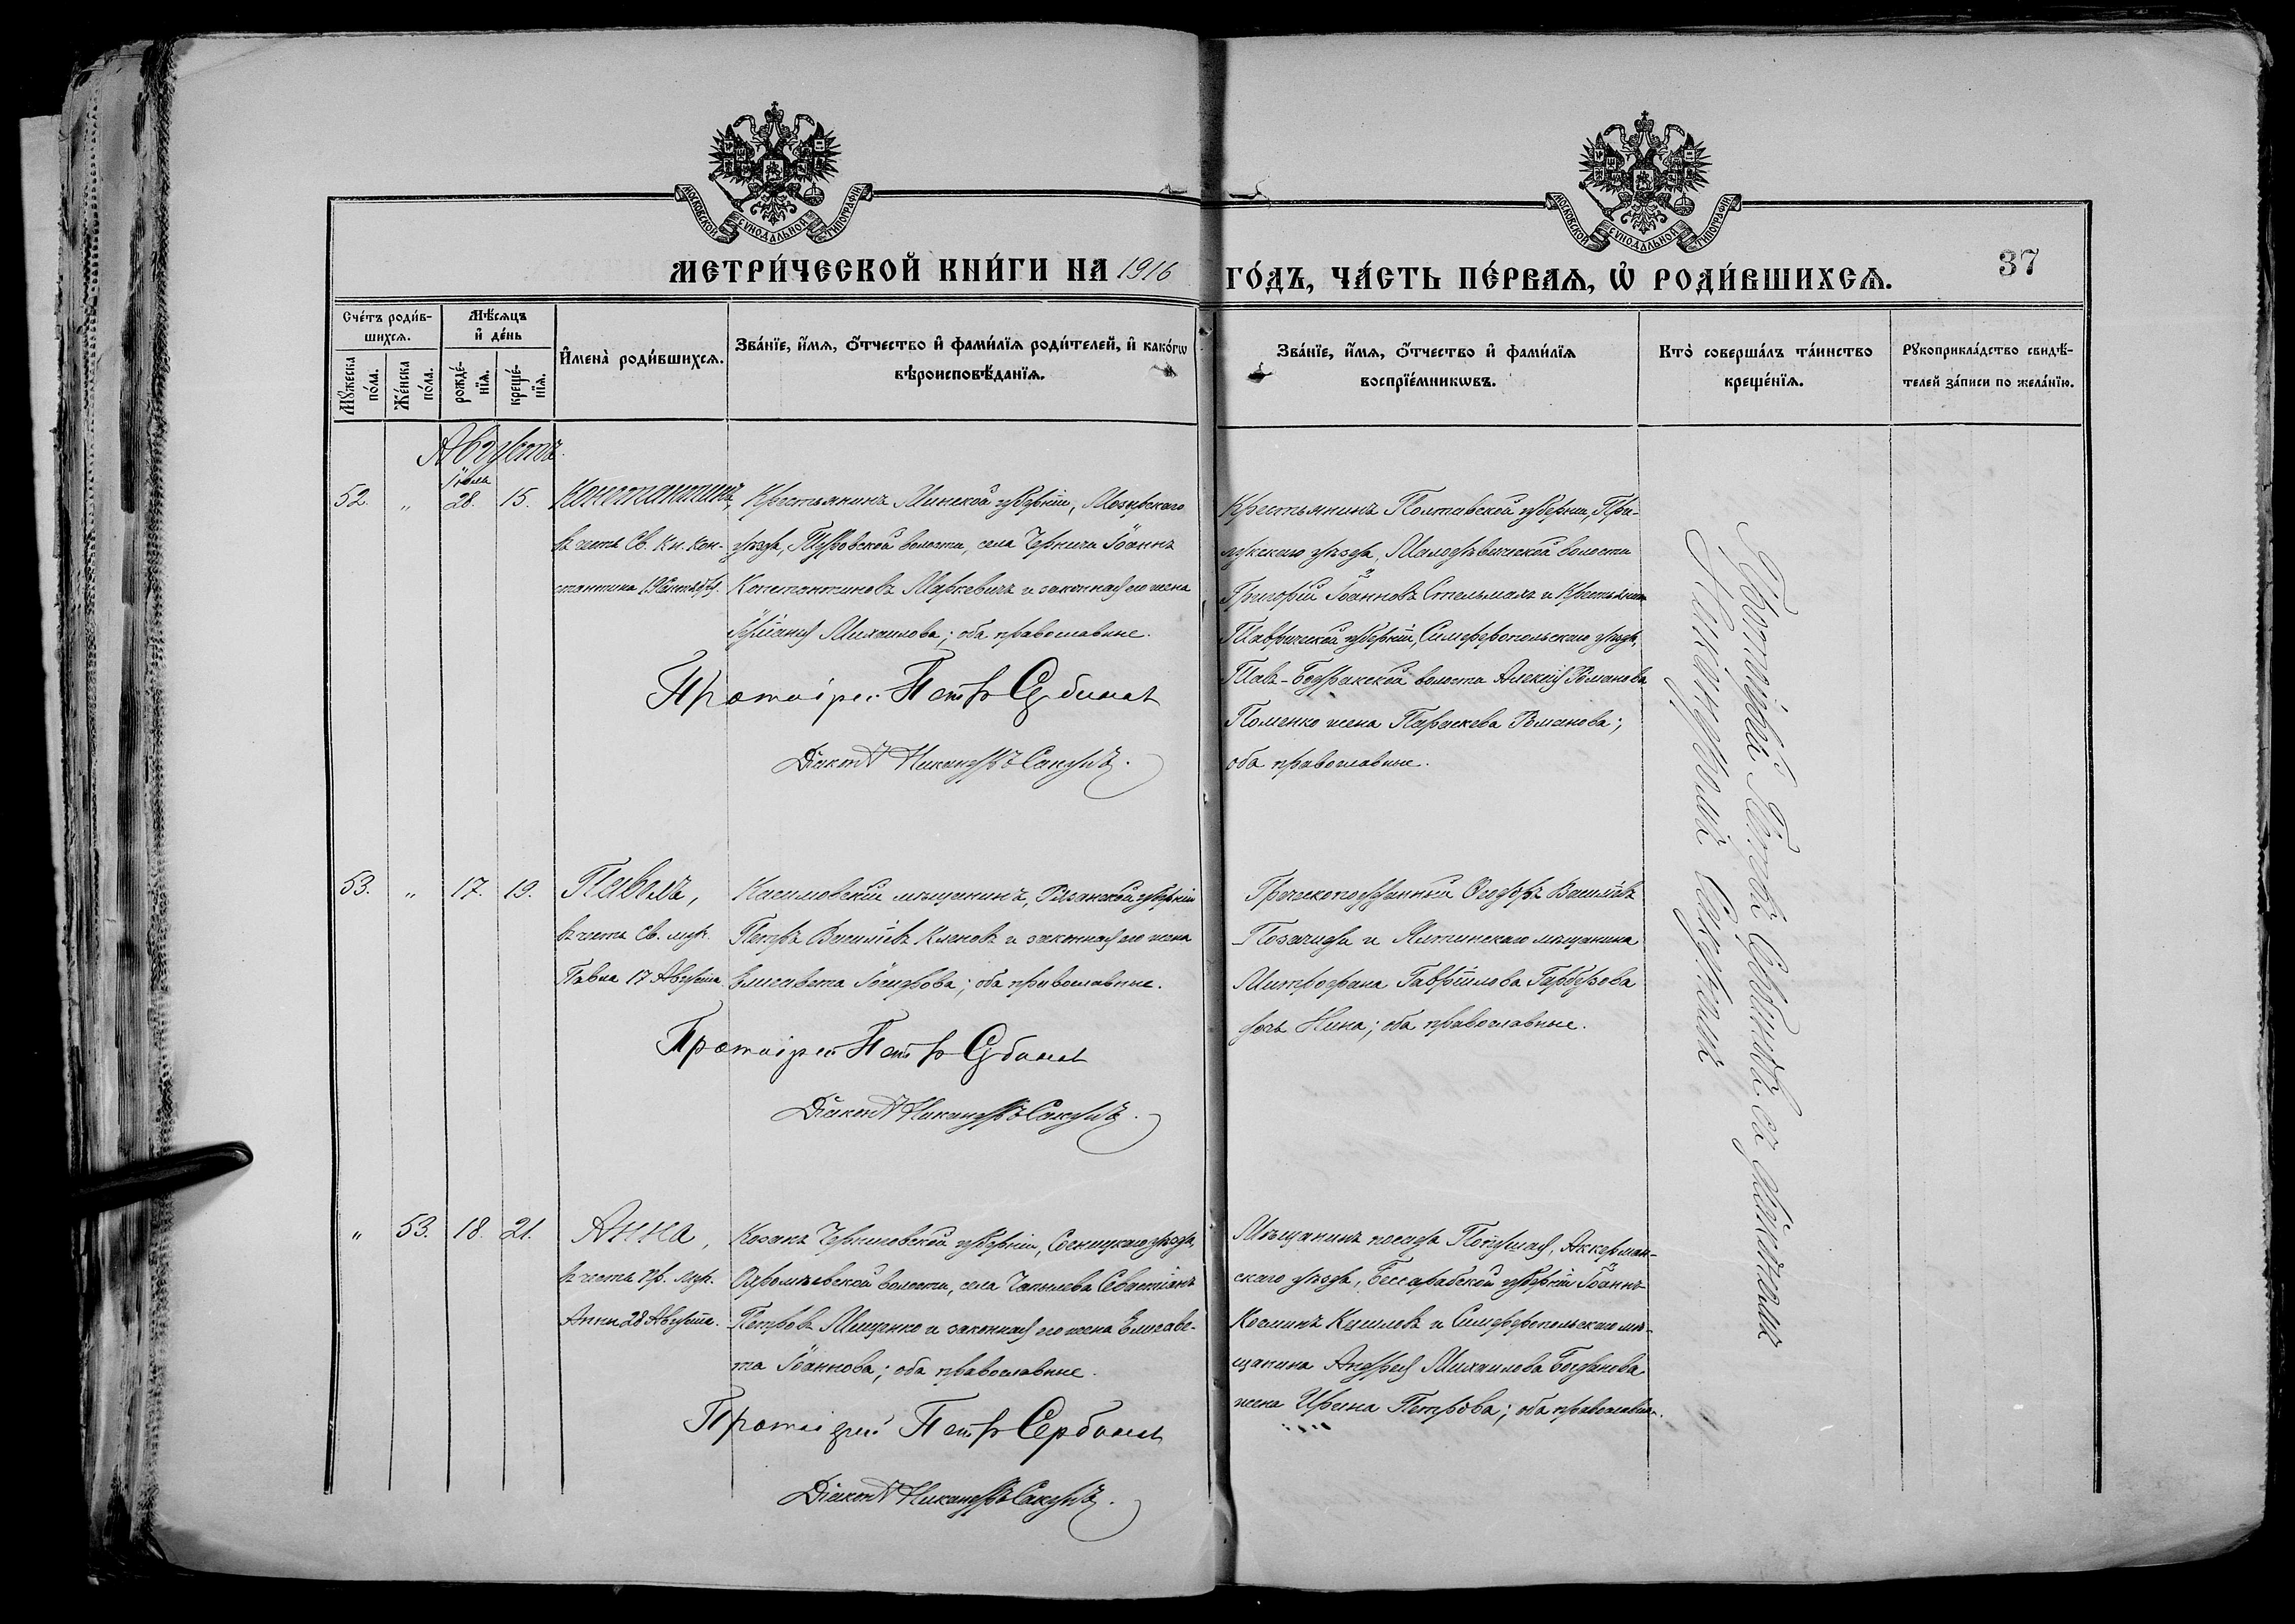 МОСКОВСКОЙ СѴНОДАЛЬНОЙ ТИПОГРАФІИ
МОСКОВСКОЙ СѴНОДАЛЬНОЙ ТИПОГРАФІИ
МЕТРИ́ЧЕСКОЙ КНИ́ГИ НА 1916 ГО́ДЪ, ЧА́СТЬ ПЕ́РВАѦ, Ѡ҆ РОДИ́ВШИХСѦ.
37
Сче́тъ роди́в-
шихсѧ.
Мѣ́сѧцъ
и҆ де́нь
Мꙋ́жеска
по́ла.
Же́нска
по́ла.
рожде́-
нїѧ.
креще́-
нїѧ.
И҆мена̀ роди́вшихсѧ.
Зва́нїе, и҆́мѧ, ѻ҆́тчество и҆ фами́лїѧ роди́телей, и҆ како́гѡ
вѣроисповѣ́данїѧ.
Зва́нїе, и҆́мѧ, ѻ҆́тчество и҆ фами́лїѧ
воспрїе́мникѡвъ.
Кто̀ соверша́лъ та́инство
креще́нїѧ.
Рꙋкоприкла́дство свидѣ́-
телей за́писи по жела́нїю.
Августъ.
Іюля
52. „ 28. 15. Константинъ,
въ честь Св. Кн. Кон-
стантина
Крестьянинъ Минской губерніи, Мозырскаго
уѣзда, Туровской волости, села Черничи Іоаннъ
Константиновъ Маркевичъ и законная его жена
Іуліанія Михаилова; оба православные.
Протоіерей Петръ Сербиновъ
Діаконъ Никандръ Сакунъ.
Крестьянинъ Полтавской губерніи, При-
лукскаго уѣзда, Малодѣвической волости
Григорій Іоанновъ Стельмахъ и Крестьянина
Таврической губерніи, Симферопольскаго уѣзда,
Тав-Бодракской волости Алексія Романова
жена Параскева Романова;
оба православные.
53. „ 17. 19. Павелъ,
въ честь Св. муч.
Павла 17 Августа.
Касимовскій мѣщанинъ, Рязанской губерніи
Петръ Василіевъ Кленовъ и законная его жена
Елисавета Іосифова; оба православные.
Протоіерей Петръ Сербиновъ
Діаконъ Никандръ Сакунъ.
Греческоподданный Ѳеодоръ Василіевъ
и Ялтинскаго мѣщанина
Митрофана Гавріилова
дочь Нина; оба православные.
„ 53. 18. 21. Анна,
въ честь Пр. муч.
Анны 28 Августа.
Козакъ Черниговской губерніи, Сосницкаго уѣзда,
волости, села Севастіанъ
Петровъ Мищенко и законная его жена Елисаве-
та Іоаннова; оба православные.
Протоіерей Петръ Сербиновъ
Діаконъ Никандръ Сакунъ.
Мѣщанинъ посада Аккерман-
скаго уѣзда, Бессарабской губерніи Іоаннъ
Косминъ и Симферопольскаго мѣ-
щанина Андрея Михаилова Богданова
жена Ирина Петрова; оба православн.
Протоіерей Петръ Сербиновъ съ діакономъ
Никандромъ Сакуномъ